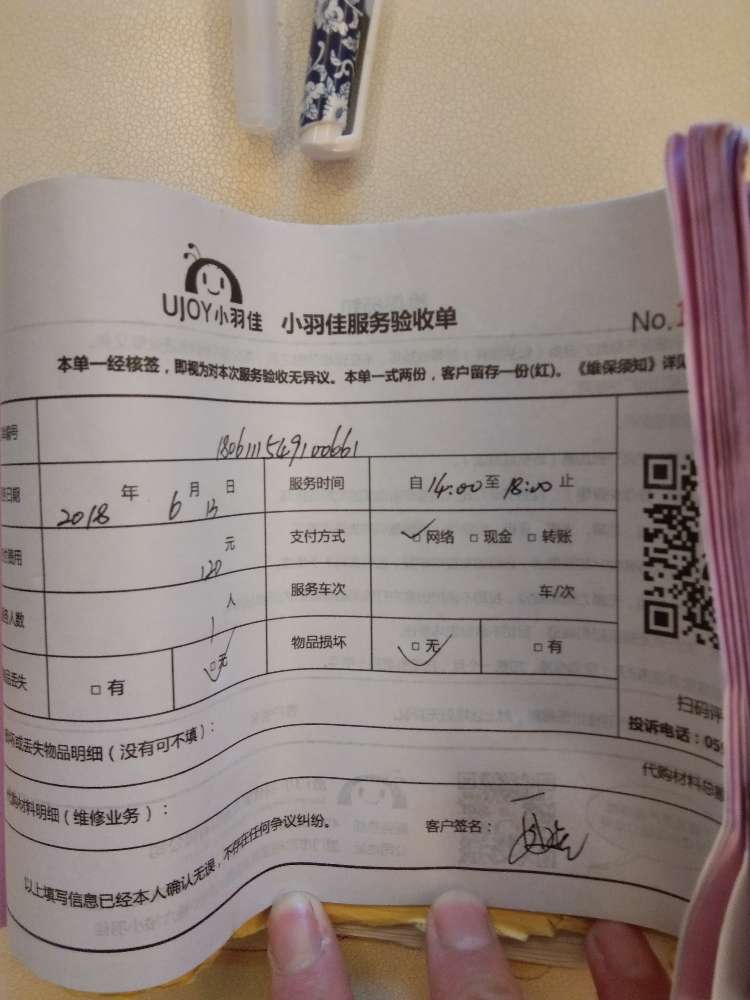 UJOY小羽佳 小羽佳服务验收单 No.
本单一经核签，即视为对本次服务验收无异议。本单一式两份，客户留存一份(红)。《维保须知》详见
编号 180611549100661
日期 2018年6月13日 服务时间 自14:00至18:00止
费用 120元 支付方式 ☑网络 □现金 □转账
人数 1人 服务车次 车/次
品丢失 □有 ☑无 物品损坏 ☑无 □有
扫码评
投诉电话：05
坏或丢失物品明细（没有可不填）：
代购材料总
代购材料明细（维修业务）：
客户签名：
以上填写信息已经本人确认无误，不存在任何争议纠纷。